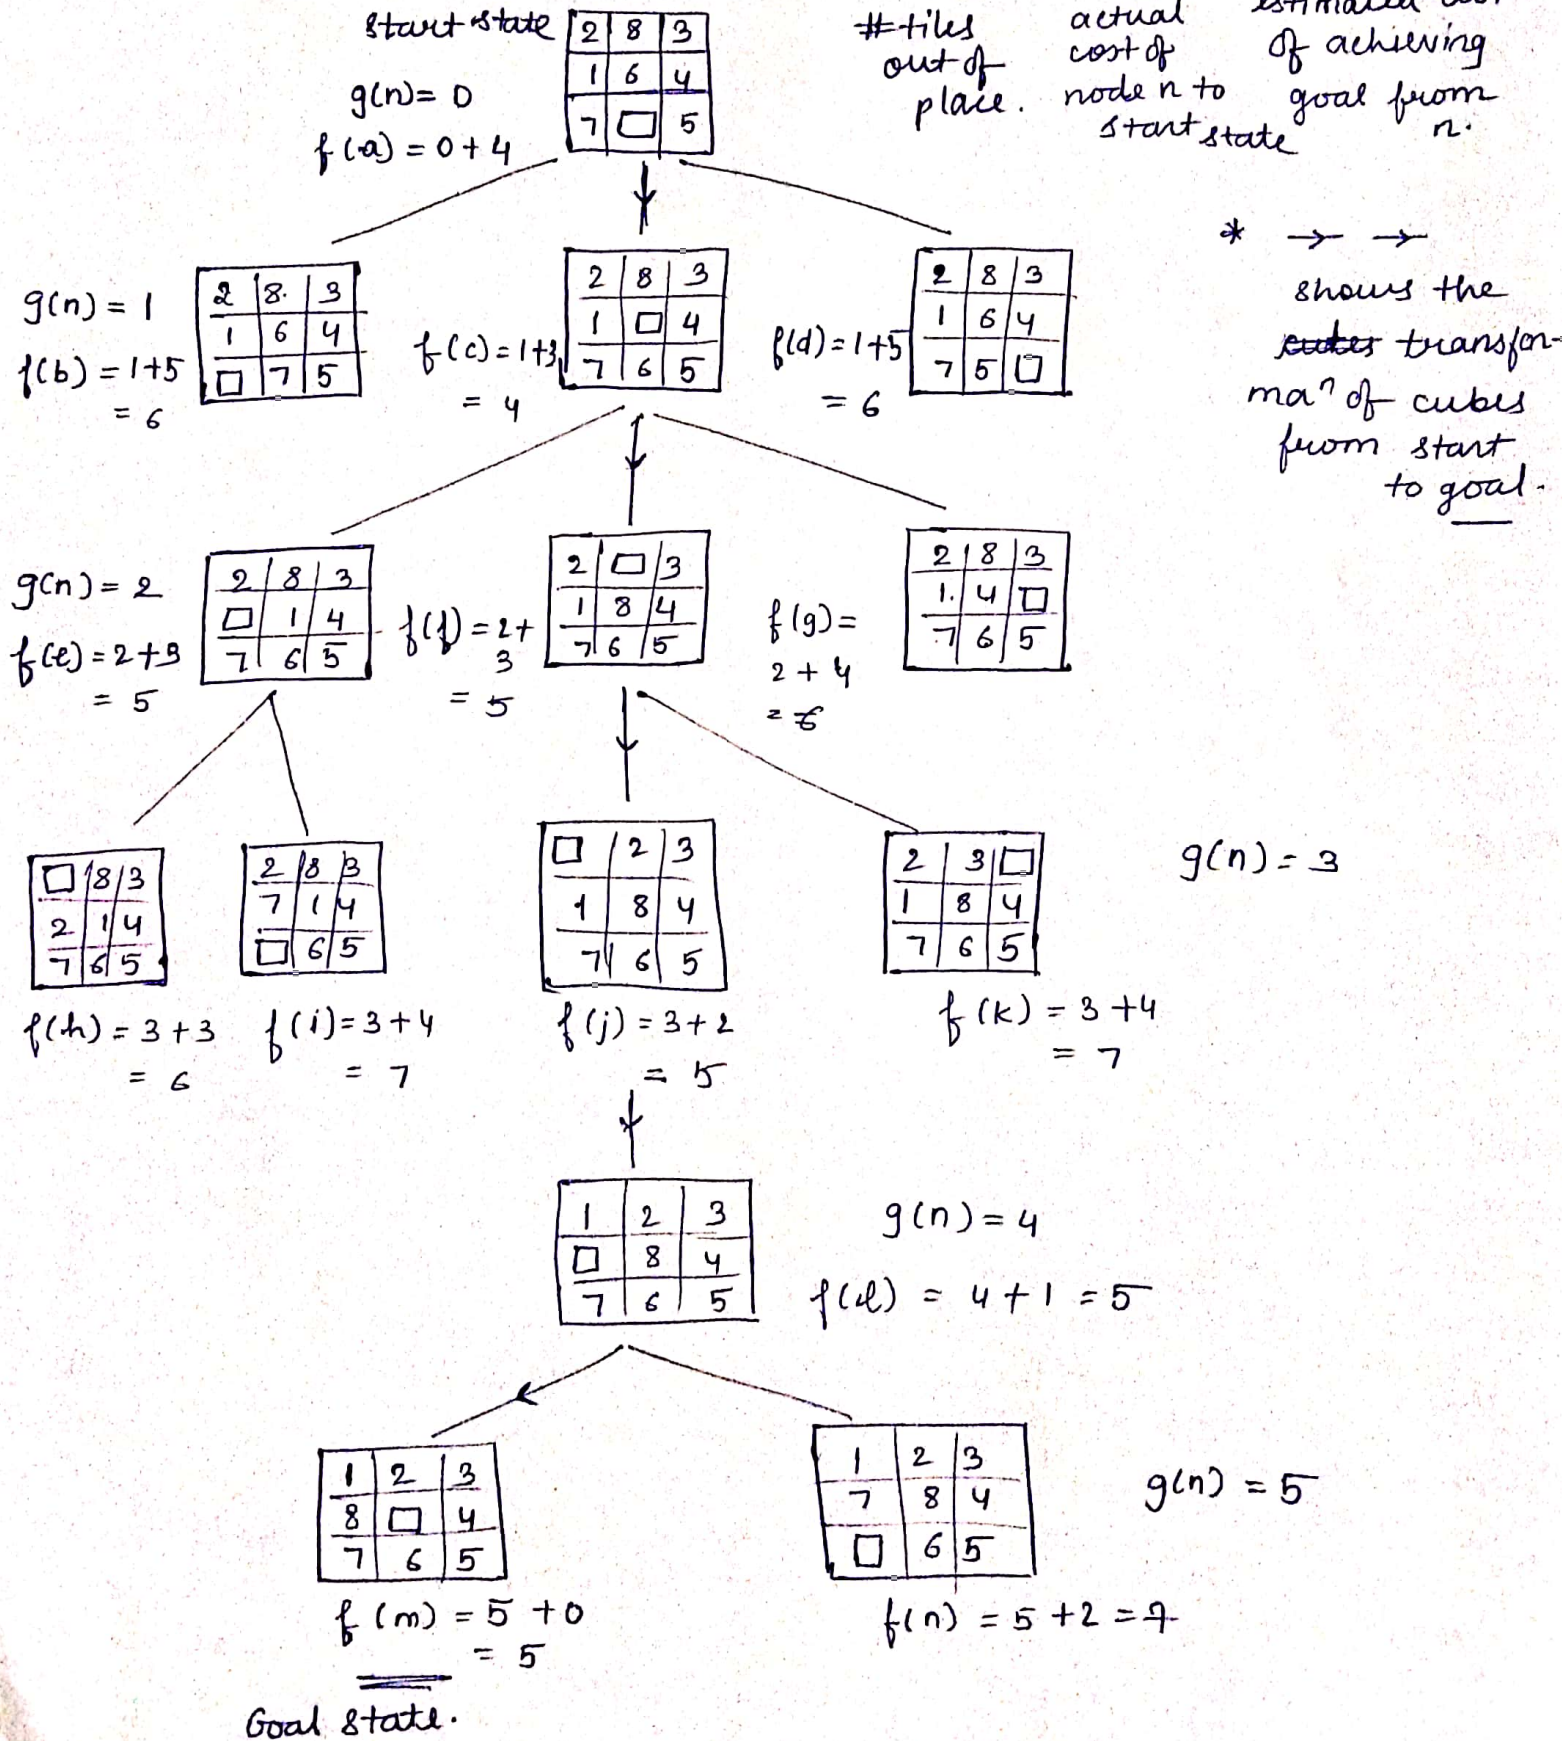 start state
2 8 3
1 6 4
7 □ 5
g(n) = 0
f(a) = 0 + 4
#tiles out of place.
actual cost of node n to start state
estimated cost of achieving goal from n.
* → →
shows the
transfor-
maⁿ of cubes
from start
to goal.
g(n) = 1
f(b) = 1+5
= 6
2 8 3
1 6 4
□ 7 5
f(c) = 1+3
= 4
2 8 3
1 □ 4
7 6 5
f(d) = 1+5
= 6
2 8 3
1 6 4
7 5 □
g(n) = 2
f(e) = 2+3
= 5
2 8 3
□ 1 4
7 6 5
f(f) = 2+
3
= 5
2 □ 3
1 8 4
7 6 5
f(g) =
2 + 4
= 6
2 8 3
1 4 □
7 6 5
□ 8 3
2 1 4
7 6 5
f(h) = 3+3
= 6
2 8 3
7 1 4
□ 6 5
f(i) = 3+4
= 7
□ 2 3
1 8 4
7 6 5
f(j) = 3+2
= 5
2 3 □
1 8 4
7 6 5
f(k) = 3+4
= 7
g(n) = 3
1 2 3
□ 8 4
7 6 5
g(n) = 4
f(l) = 4+1 = 5
1 2 3
8 □ 4
7 6 5
f(m) = 5+0
= 5
Goal state.
1 2 3
7 8 4
□ 6 5
f(n) = 5+2 = 7
g(n) = 5